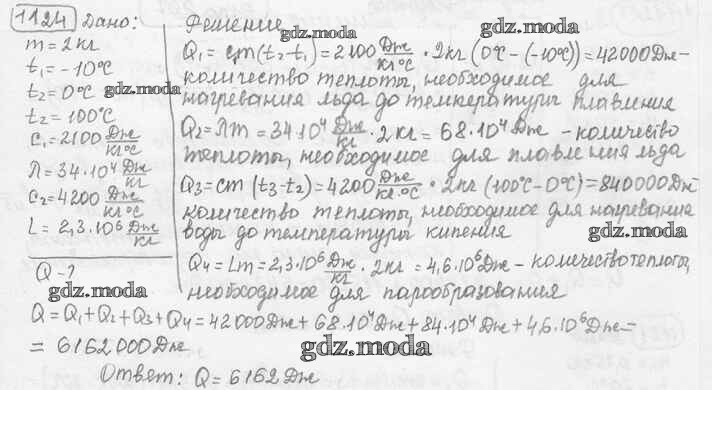 1124 Дано:
m = 2 кг
t₁ = -10°C
t₂ = 0°C
t₂ = 100°C
c₁ = 2100 Дж/кг°C
λ = 34·10⁴ Дж/кг
c₂ = 4200 Дж/кг°C
L = 2,3·10⁶ Дж/кг
Q - ?
Решение
Q₁ = cm(t₂-t₁) = 2100 Дж/кг°C · 2кг (0°C - (-10°C)) = 42000 Дж -
количество теплоты, необходимое для
нагревания льда до температуры плавления
Q₂ = λm = 34·10⁴ Дж/кг · 2 кг = 68·10⁴ Дж - количество
теплоты, необходимое для плавления льда
Q₃ = cm(t₃-t₂) = 4200 Дж/кг·°C · 2кг (100°C - 0°C) = 840000 Дж -
количество теплоты, необходимое для нагревания
воды до температуры кипения
Q₄ = Lm = 2,3·10⁶ Дж/кг · 2кг = 4,6·10⁶ Дж - количество теплоты,
необходимое для парообразования
Q = Q₁ + Q₂ + Q₃ + Q₄ = 42000 Дж + 68·10⁴ Дж + 84·10⁴ Дж + 4,6·10⁶ Дж =
= 6162000 Дж
Ответ: Q = 6162 Дж
gdz.moda
gdz.moda
gdz.moda
gdz.moda
gdz.moda
gdz.moda